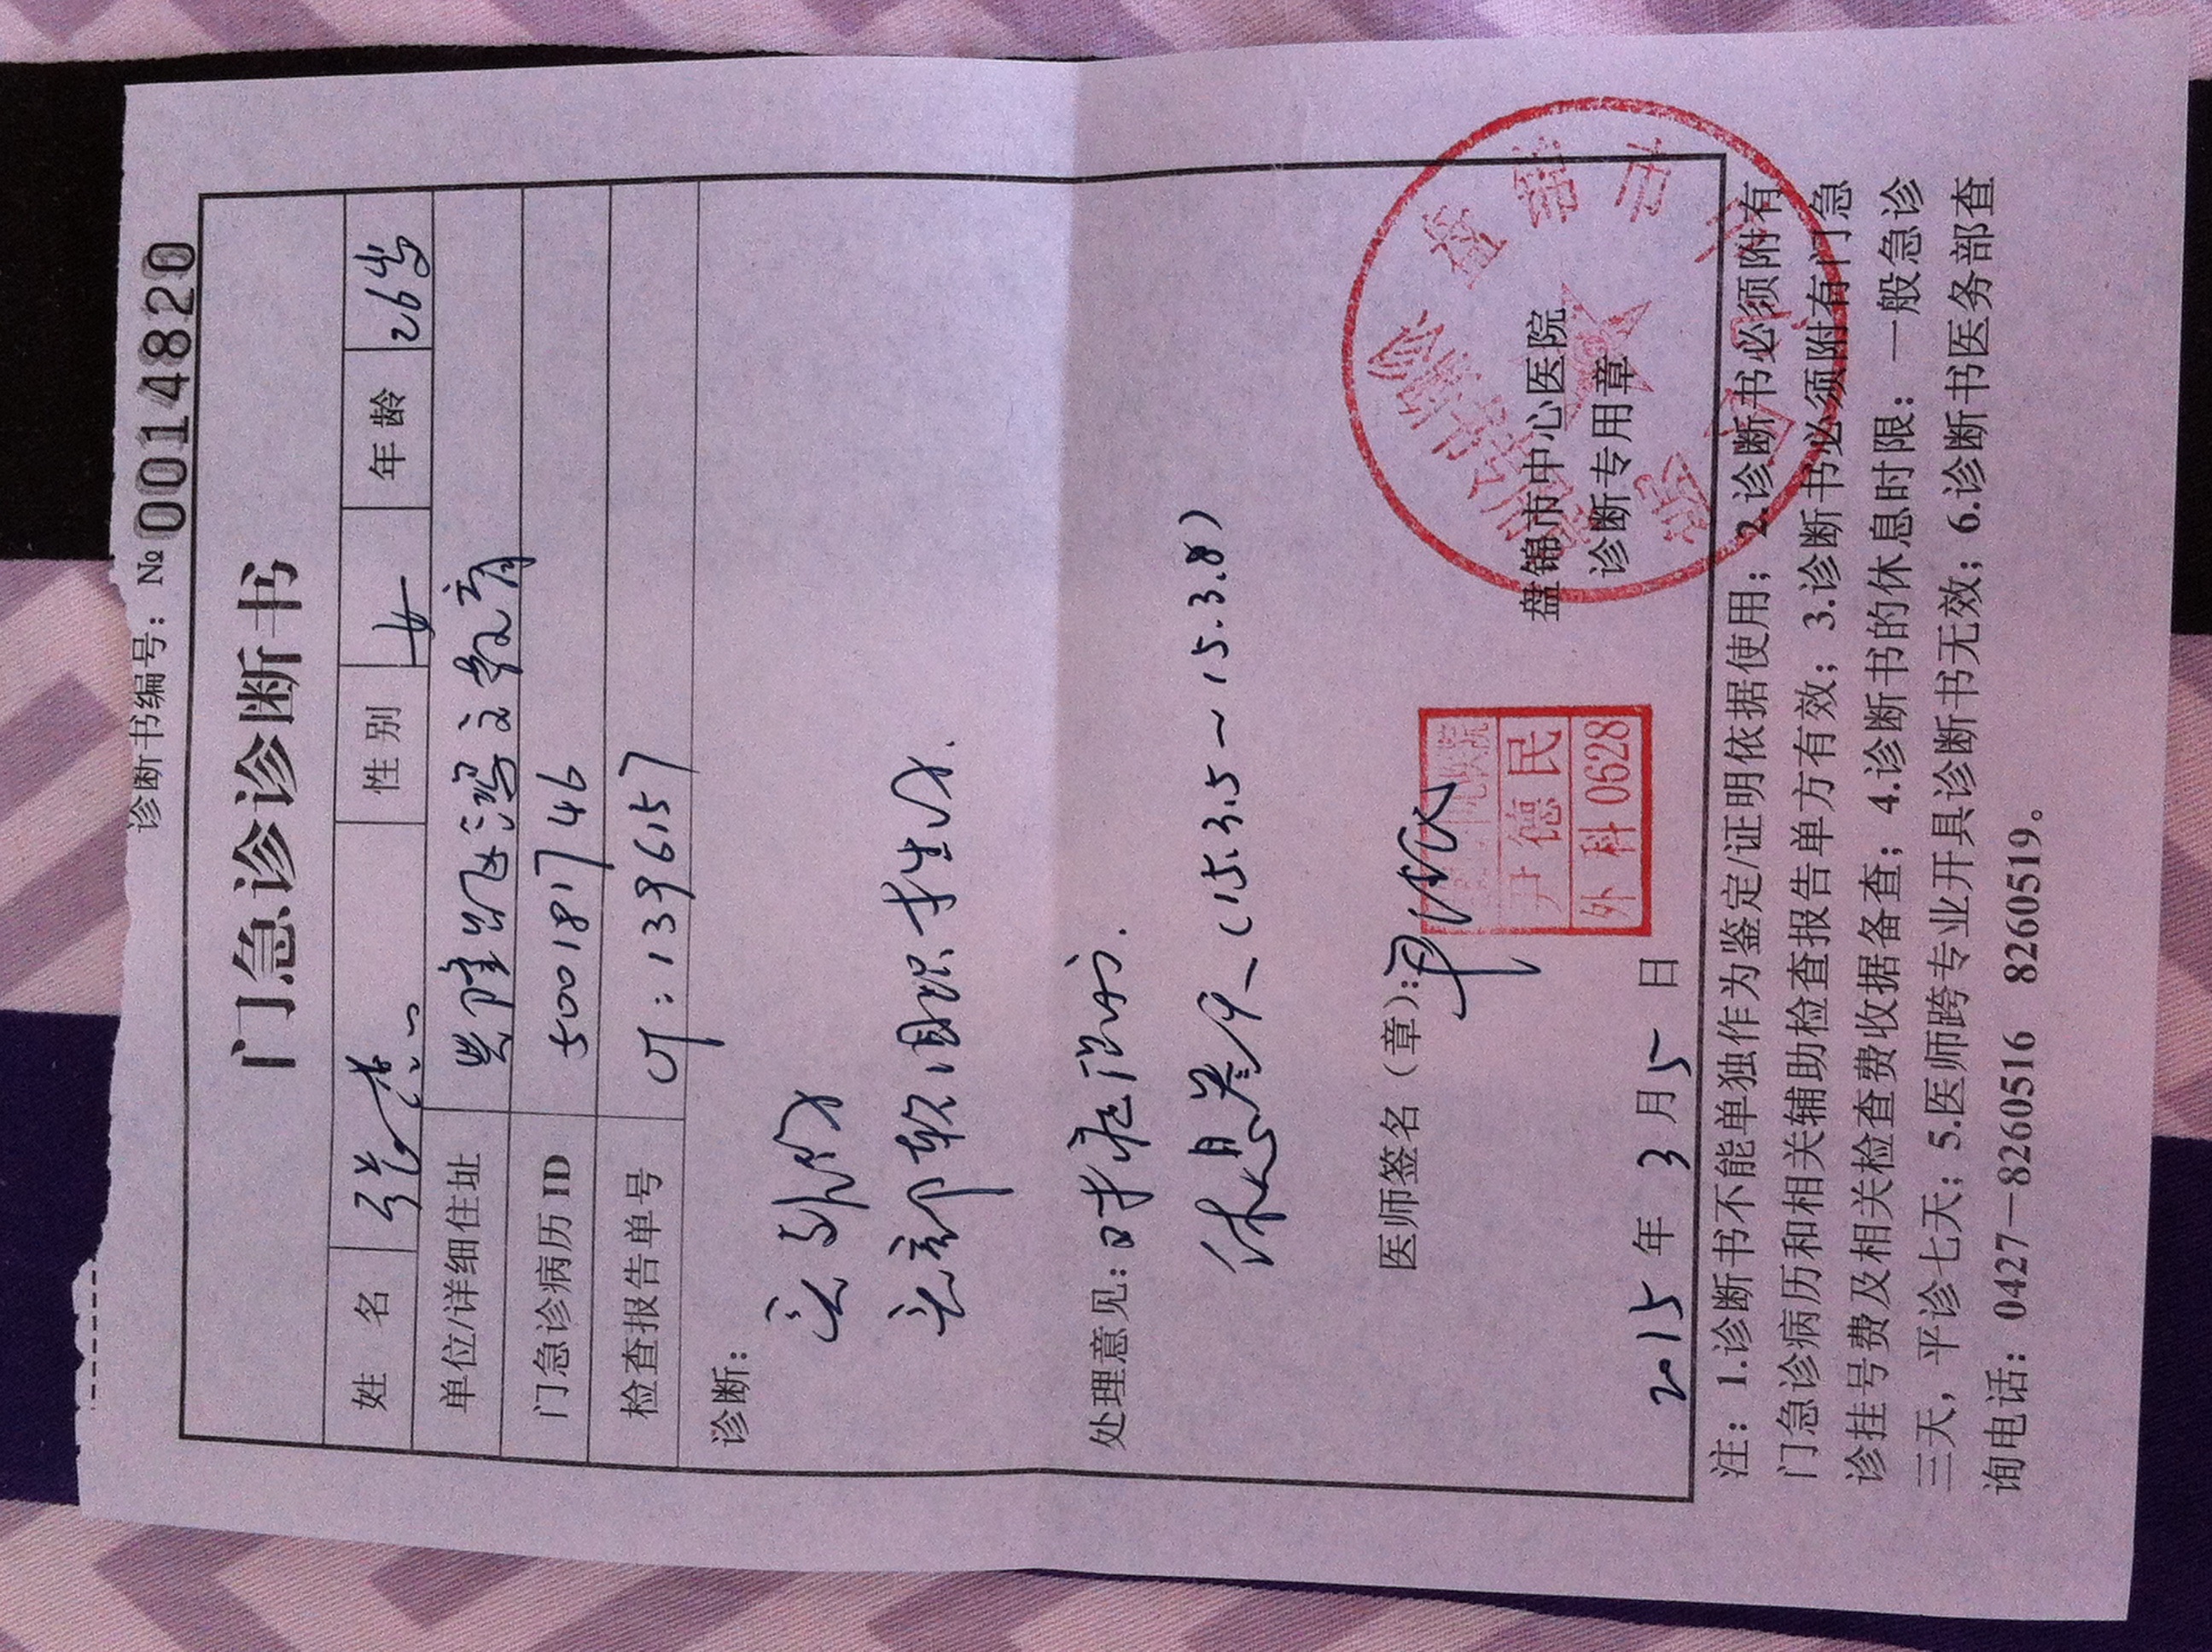 诊断书编号：№ 0014820
门急诊诊断书
姓 名 张杰 性别 女 年龄 26岁
单位/详细住址 兴隆 鸿文教育
门急诊病历 ID 500181746
检查报告单号 CT：1396157
诊断：
头外伤
头部软组织挫伤.
处理意见：对症治疗.
休息叁天（15.3.5～15.3.8）
医师签名（章）：尹德民
中心医院
尹德民
外科 0628
盘锦市中心医院
诊断专用章
2015 年 3 月 5 日
注：1.诊断书不能单独作为鉴定/证明依据使用；2.诊断书必须附有
门急诊病历和相关辅助检查报告单方有效；3.诊断书必须附有门急
诊挂号费及相关检查费收据备查；4.诊断书的休息时限：一般急诊
三天，平诊七天；5.医师跨专业开具诊断书无效；6.诊断书医务部查
询电话：0427－8260516 8260519。